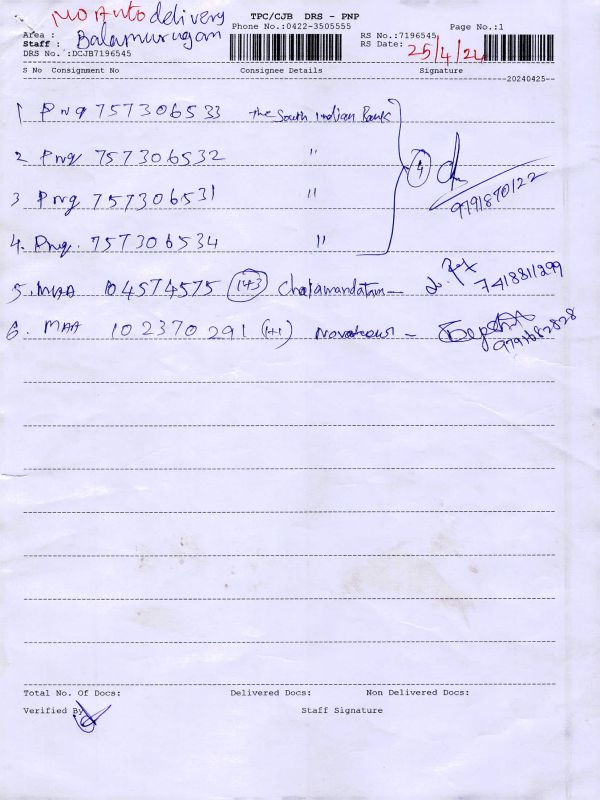 No Auto delivery
TPC/CJB DRS - PNP
Page No.:1
Area :
Phone No.:0422-3505555
RS No.:7196545
Staff : Balamurugan
RS Date: 25/4/24
DRS No.:DCJB7196545
S No Consignment No Consignee Details Signature
20240425
1 Pnq 757306533 the South Indian Bank
2 Pnq 757306532 "
(4)
9791870122
3 Pnq 757306531 "
4. Pnq. 757306534 "
5. MAA 104574575 (1+3) Cholamandalam - 7418811299
6. MAA 102370291 (1+1) - 9791682828
Total No. Of Docs: Delivered Docs: Non Delivered Docs:
Verified By Staff Signature